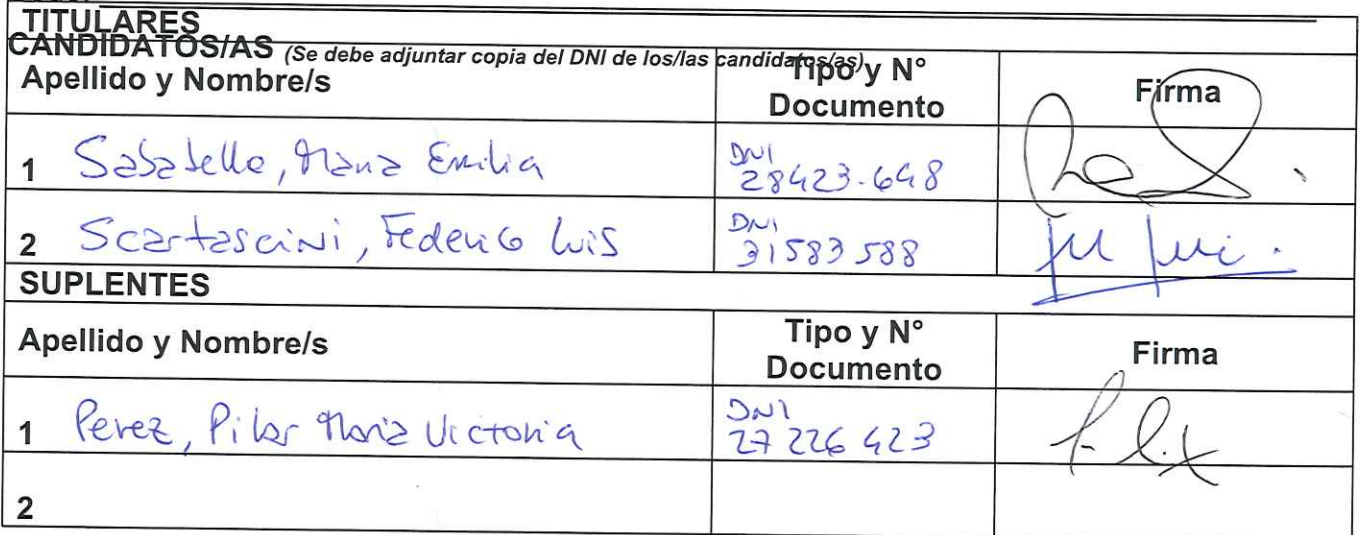 TITULARES
CANDIDATOS/AS (Se debe adjuntar copia del DNI de los/las candidatos/as)
Apellido y Nombre/s Tipo y N° Documento Firma
1 Sabatella, Maria Emilia DNI 28423.648
2 Scartascini, Federico Luis DNI 31583588
SUPLENTES
Apellido y Nombre/s Tipo y N° Documento Firma
1 Perez, Pilar Maria Victoria DNI 27 226 423
2